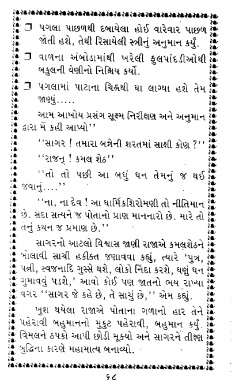 ❐ પગલા પાછળથી દબાયેલા હોઈ વારેવાર પાછળ
જોતી હશે, તેથી રિસાયેલી સ્ત્રીનું અનુમાન કર્યું.
❐ વાળના અંબોડામાંથી ખરેલી ફુલપાંદડીઓથી
બકુલની વેણીનો નિશ્ચિય કર્યો.
❐ પગલામાં પાટાના ચિહ્નથી ઘા લાગ્યા હશે તેમ
જાણ્યું.....
આમ આખોય પ્રસંગ સૂક્ષ્મ નિરીક્ષણ અને અનુમાન
દ્વારા મેં કહી આપ્યો”
“સાગર ! તમારા બન્નેની શરતમાં સાક્ષી કોણ ?”
“રાજન્ ! કમલ શેઠ”
“તો તો પછી આ બધું ધન તેમનું જ થઈ
જવાનું....”
“ના, ના દેવ ! આ ધાર્મિકશિરોમણી તો નીતિમાન
છે. સદા સત્યને જ પોતાનો પ્રાણ માનનારો છે. મારે તો
તેનું કથન જ પ્રમાણ છે.”
સાગરનો આટલો વિશ્વાસ જાણી રાજાએ કમલશેઠને
બોલાવી સાચી હકીકત જણાવવા કહ્યું, ત્યારે “પુત્ર,
પત્ની, સ્વજનાદિ ગુસ્સે થશે, લોકો નિંદા કરશે, ઘણું ધન
ગુમાવવું પડશે,” આવો કોઈ પણ જાતનો ભય રાખ્યા
વગર “સાગર જે કહે છે, તે સાચું છે,” એમ કહ્યું.
ખુશ થયેલા રાજાએ પોતાના ગળાનો હાર તેને
પહેરાવી બહુમાનનો મુકુટ પહેરાવી, બહુમાન કર્યું.
વિમલને ઠપકો આપી છોડી મૂક્યો અને સાગરને તીક્ષ્ણ
બુદ્ધિના કારણે મહામાત્ય બનાવ્યો.
૬૮